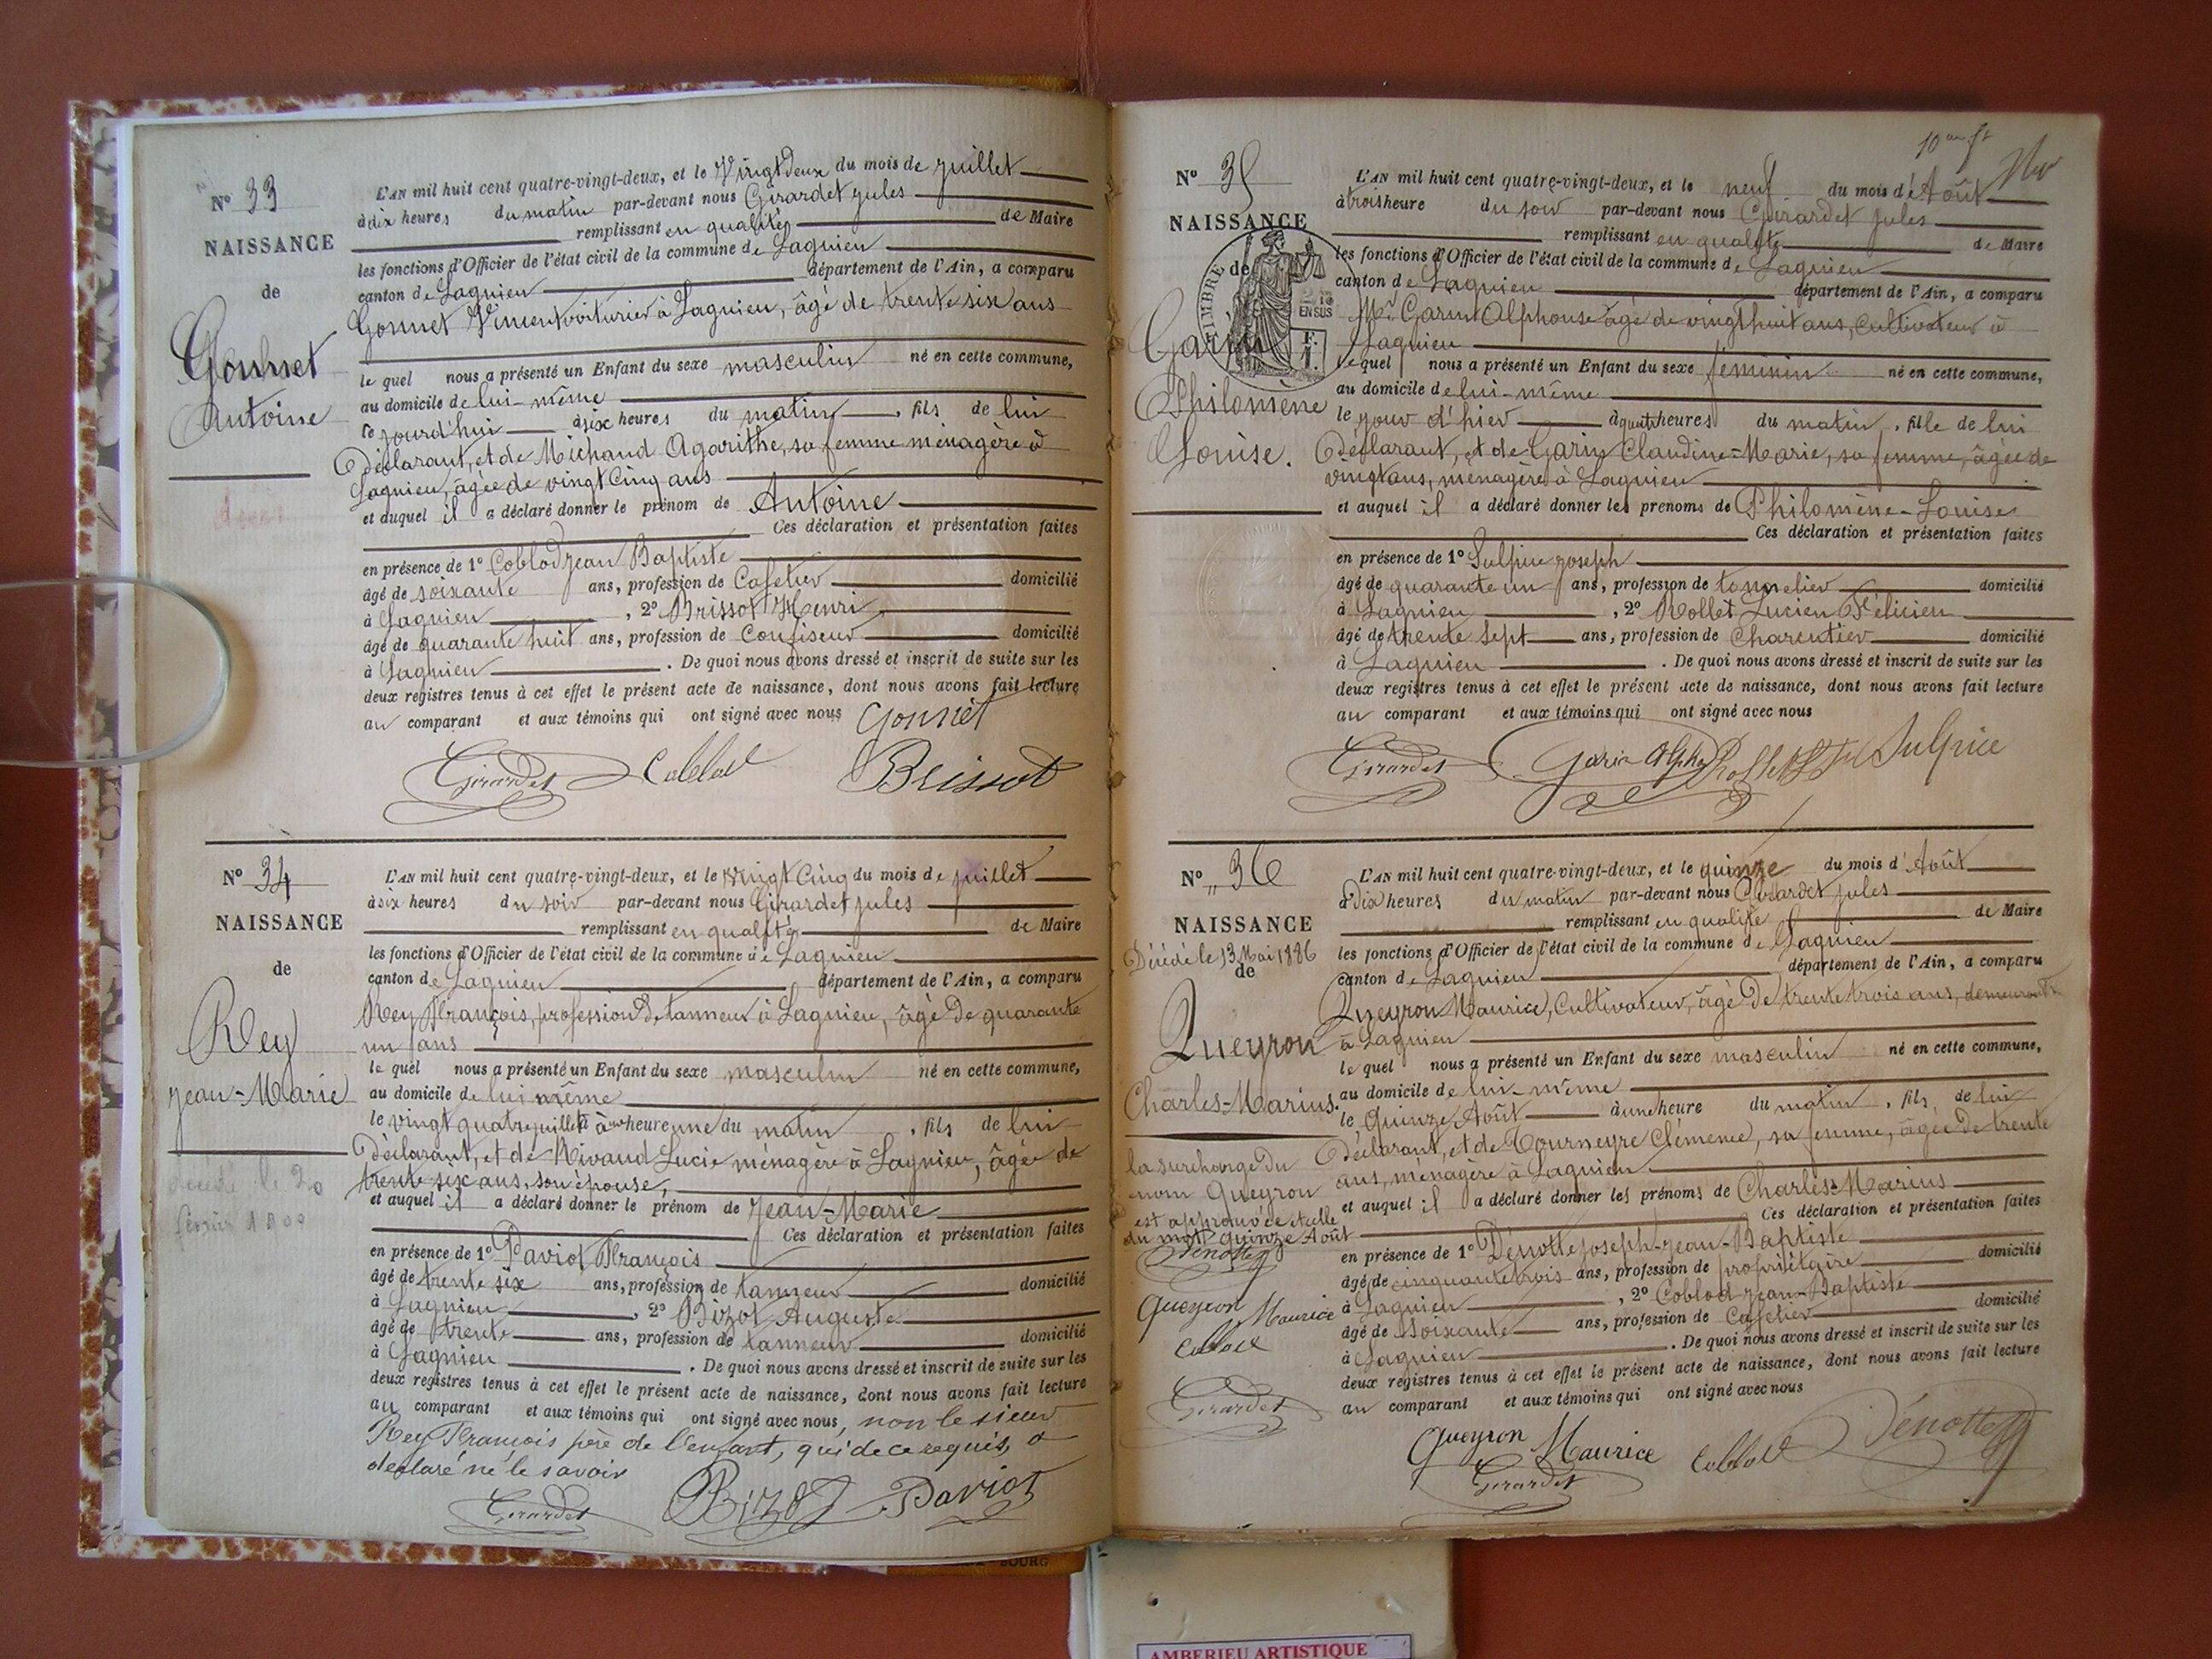 N° 33
NAISSANCE
de
Gonnet
Antoine
L'AN mil huit cent quatre-vingt-deux, et le Vingt Deux du mois de juillet
à dix heures du matin par-devant nous Girardet jules
remplissant en qualité de Maire
les fonctions d'Officier de l'état civil de la commune de Lagnieu
canton de Lagnieu département de l'Ain, a comparu
Gonnet Vincent voiturier à Lagnieu, âgé de trente six ans
le quel nous a présenté un Enfant du sexe masculin né en cette commune,
au domicile de lui-même
ce jourd'hui à six heures du matin, fils de lui
Déclarant, et de Michaud Agarithe, sa femme ménagère à
Lagnieu, âgée de vingt Cinq ans
et auquel il a déclaré donner le prénom de Antoine
Ces déclaration et présentation faites
en présence de 1° Coblod jean Baptiste
âgé de soixante ans, profession de Cafetier domicilié
à Lagnieu, 2° Brissot Henri
âgé de quarante huit ans, profession de Confiseur domicilié
à Lagnieu. De quoi nous avons dressé et inscrit de suite sur les
deux registres tenus à cet effet le présent acte de naissance, dont nous avons fait lecture
au comparant et aux témoins qui ont signé avec nous Gonnet
Girardet Coblod Brissot
N° 34
NAISSANCE
de
Rey
jean-Marie
décédé le 20
L'AN mil huit cent quatre-vingt-deux, et le Vingt Cinq du mois de juillet
à six heures du soir par-devant nous Girardet jules
remplissant en qualité de Maire
les fonctions d'Officier de l'état civil de la commune de Lagnieu
canton de Lagnieu département de l'Ain, a comparu
Rey François, profession de tanneur à Lagnieu, âgé de quarante
un ans
le quel nous a présenté un Enfant du sexe masculin né en cette commune,
au domicile de lui même
le vingt quatre juillet à heure une du matin, fils de lui
Déclarant, et de Nivaud Lucie ménagère à Lagnieu, âgée de
trente six ans, son épouse,
et auquel il a déclaré donner le prénom de Jean-Marie
Ces déclaration et présentation faites
en présence de 1° Paviot François
âgé de trente six ans, profession de tanneur domicilié
à Lagnieu, 2° Bizot Auguste
âgé de trente ans, profession de tanneur domicilié
à Lagnieu. De quoi nous avons dressé et inscrit de suite sur les
deux registres tenus à cet effet le présent acte de naissance, dont nous avons fait lecture
au comparant et aux témoins qui ont signé avec nous, non le sieur
Rey François père de l'enfant, qui de ce requis, a
déclaré ne le savoir
Girardet Bizot Paviot
N° 35
NAISSANCE
de
TIMBRE
EN SUS
Garin
Philomène
Louise.
L'AN mil huit cent quatre-vingt-deux, et le neuf du mois d'Août
à trois heure du soir par-devant nous Girardet jules
remplissant en qualité de Maire
les fonctions d'Officier de l'état civil de la commune de Lagnieu
canton de Lagnieu département de l'Ain, a comparu
Mr Garin Alphonse âgé de vingt huit ans, Cultivateur à
Lagnieu
le quel nous a présenté un Enfant du sexe féminin né en cette commune,
au domicile de lui-même
le jour d'hier à quatre heures du matin, fille de lui
Déclarant, et de Garin Claudine-Marie, sa femme, âgée de
vingt ans, ménagère à Lagnieu
et auquel il a déclaré donner les prénoms de Philomène-Louise
Ces déclaration et présentation faites
en présence de 1° Sulpice joseph
âgé de quarante un ans, profession de tonnelier domicilié
à Lagnieu, 2° Rollet Lucien Félicien
âgé de trente sept ans, profession de Charentier domicilié
à Lagnieu. De quoi nous avons dressé et inscrit de suite sur les
deux registres tenus à cet effet le présent acte de naissance, dont nous avons fait lecture
au comparant et aux témoins qui ont signé avec nous
Girardet Garin Alph Rollet Sulpice
N° 36
NAISSANCE
Décédé le 13 Mai 1886
de
Queyron
Charles-Marius.
la surcharge du
nom Queyron
est approuvée et celle
du mot quinze Août
Dénotte
Queyron Maurice
Coblod
Girardet
L'AN mil huit cent quatre-vingt-deux, et le quinze du mois d'Août
à Dix heures du matin par-devant nous Girardet jules
remplissant en qualité de Maire
les fonctions d'Officier de l'état civil de la commune de Lagnieu
canton de Lagnieu département de l'Ain, a comparu
Queyron Maurice, Cultivateur, âgé de trente trois ans, demeurant
à Lagnieu
le quel nous a présenté un Enfant du sexe masculin né en cette commune,
au domicile de lui-même
le Quinze Août à une heure du matin, fils de lui
Déclarant, et de Tourneyre Clémence, sa femme, âgée de trente
ans, ménagère à Lagnieu
et auquel il a déclaré donner les prénoms de Charles-Marius
Ces déclaration et présentation faites
en présence de 1° Dénotte joseph-jean-Baptiste
âgé de cinquante trois ans, profession de propriétaire domicilié
à Lagnieu, 2° Coblod jean-Baptiste
âgé de soixante ans, profession de Cafetier domicilié
à Lagnieu. De quoi nous avons dressé et inscrit de suite sur les
deux registres tenus à cet effet le présent acte de naissance, dont nous avons fait lecture
au comparant et aux témoins qui ont signé avec nous
Queyron Maurice Coblod Dénotte
Girardet
BOURG
AMBERIEU ARTISTIQUE